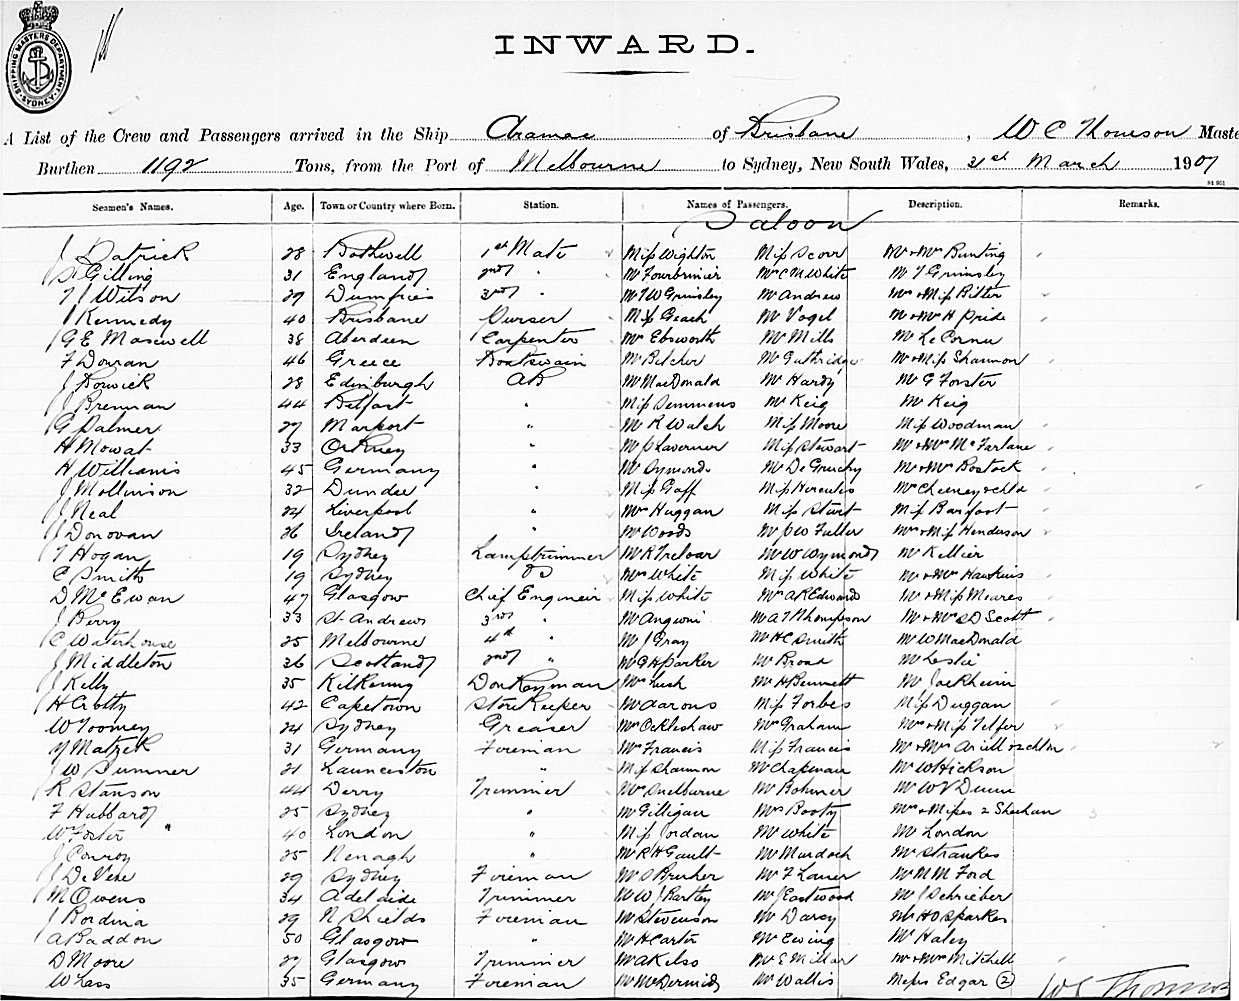 SHIPPING MASTERS DEPARTMENT SYDNEY
INWARD.
A List of the Crew and Passengers arrived in the Ship Aramac of Brisbane, W C Thomson Maste
Burthen 1192 Tons, from the Port of Melbourne to Sydney, New South Wales, 31st March 1907
Seamen's Names. Age. Town or Country where Born. Station. Names of Passengers. Description. Remarks.
Saloon
J Patrick 28 Bothwell 1st Mate Miss Wighton Miss Scorr Mr & Mrs Bunting
S Gilling 31 England 2nd " Mr Fourbrinier Mr C M White Mr T Grimsley
T J Wilson 27 Dumfries 3rd " Mr T W Grimsley Mr Andrew Mrs & Miss Bitter
J Kennedy 40 Brisbane Purser Miss Geach Mr Vogel Mr & Mrs H Pride
G E Maxwell 38 Aberdeen Carpenter Mr Ebsworth Mr Mills Mr Le Cornu
F Douran 46 Greece Boatswain Mr Belcher Mr Guthridge Mr & Miss Shannon
J Borwick 28 Edinburgh AB Mr MacDonald Mr Hardy Mr G Forster
J Brennan 44 Belfast " Miss Semmens Mr Keig Mr Keig
G Palmer 27 Marport " Mr R Walch Miss Moore Miss Woodman
H Mowat 33 Orkney " Mr P Laverner Miss Stewart Mr & Mrs McFarlane
H Williams 45 Germany " Mr Symonds Mr De Gruchy Mr & Mrs Bostock
J Mollinson 32 Dundee " Miss Goff Miss Hercules Mrs Cheeney & chld
J Neal 24 Liverpool " Mrs Huggan Miss Sturt Miss Barfoot
J Donovan 26 Ireland " Mr Woods Mr P W Fuller Mrs & Miss Henderson
T Hogan 19 Sydney Lamptrimmer Mr R Treloar Mr W Wymond Mr Kellier
C Smith 19 Sydney Do Mrs White Miss White Mr & Mrs Hawkins
D McEwan 47 Glasgow Chief Engineir Miss White Mr A R Edwards Mr & Miss Meares
J Berry 33 St Andrews 3rd " Mr Angioni Mr A T Thompson Mr & Mrs S D Scott
C Waterhouse 25 Melbourne 4th " Mr J Gray Mr H C Smith Mr W MacDonald
J Middleton 36 Scotland 2nd " Mr G H Parker Mr Broad Mr Leslie
J Kelly 35 Kilkenny Donkeyman Mrs Lush Mr H Bennett Mr Joelheim
H Crotty 42 Capetown Storekeeper Mr Aarons Miss Forbes Miss Duggan
W Toomey 24 Sydney Greaser Mr Ockleshaw Mr Graham Mrs & Miss Telfer
Y Matzek 31 Germany Foreman Mrs Francis Miss Francis Mr & Mrs Ariell & chldn
J W Sumner 21 Launceston " Miss Shannon Mr Chapman Mr W Hickson
R Stanson 44 Derry Trimmer Mrs Snelburne Mr Bohmer Mr W V Dunn
F Hubbard 25 Sydney " Mr Gilligan Mrs Booty Mrs & Misses 2 Sheehan
W Foster 40 London " Miss Jordan Mr White Mr London
J Conroy 25 Nenagh " Mr R H Gault Mr Murdoch Mr Strankes
J De Vere 29 Sydney Foreman Mr S Brusher Mr F Lauer Mr N M Ford
M Owens 34 Adelaide Trimmer Mr W J Bartley Mr J Eastwood Mr J Schrieber
J Bordina 29 N Shields Foreman Mr Stevenson Mr Darcy Mr H O Sparkes
A Baddon 50 Glasgow " Mr H Carter Mr Ewing Mr Haley
D Moore 27 Glasgow Trimmer Mr A Kelso Mr E Millar Mr & Mrs Mitchell
W Lass 35 Germany Foreman Mr McDermid Mr Wallis Messrs Edgar (2)
W C Thomson